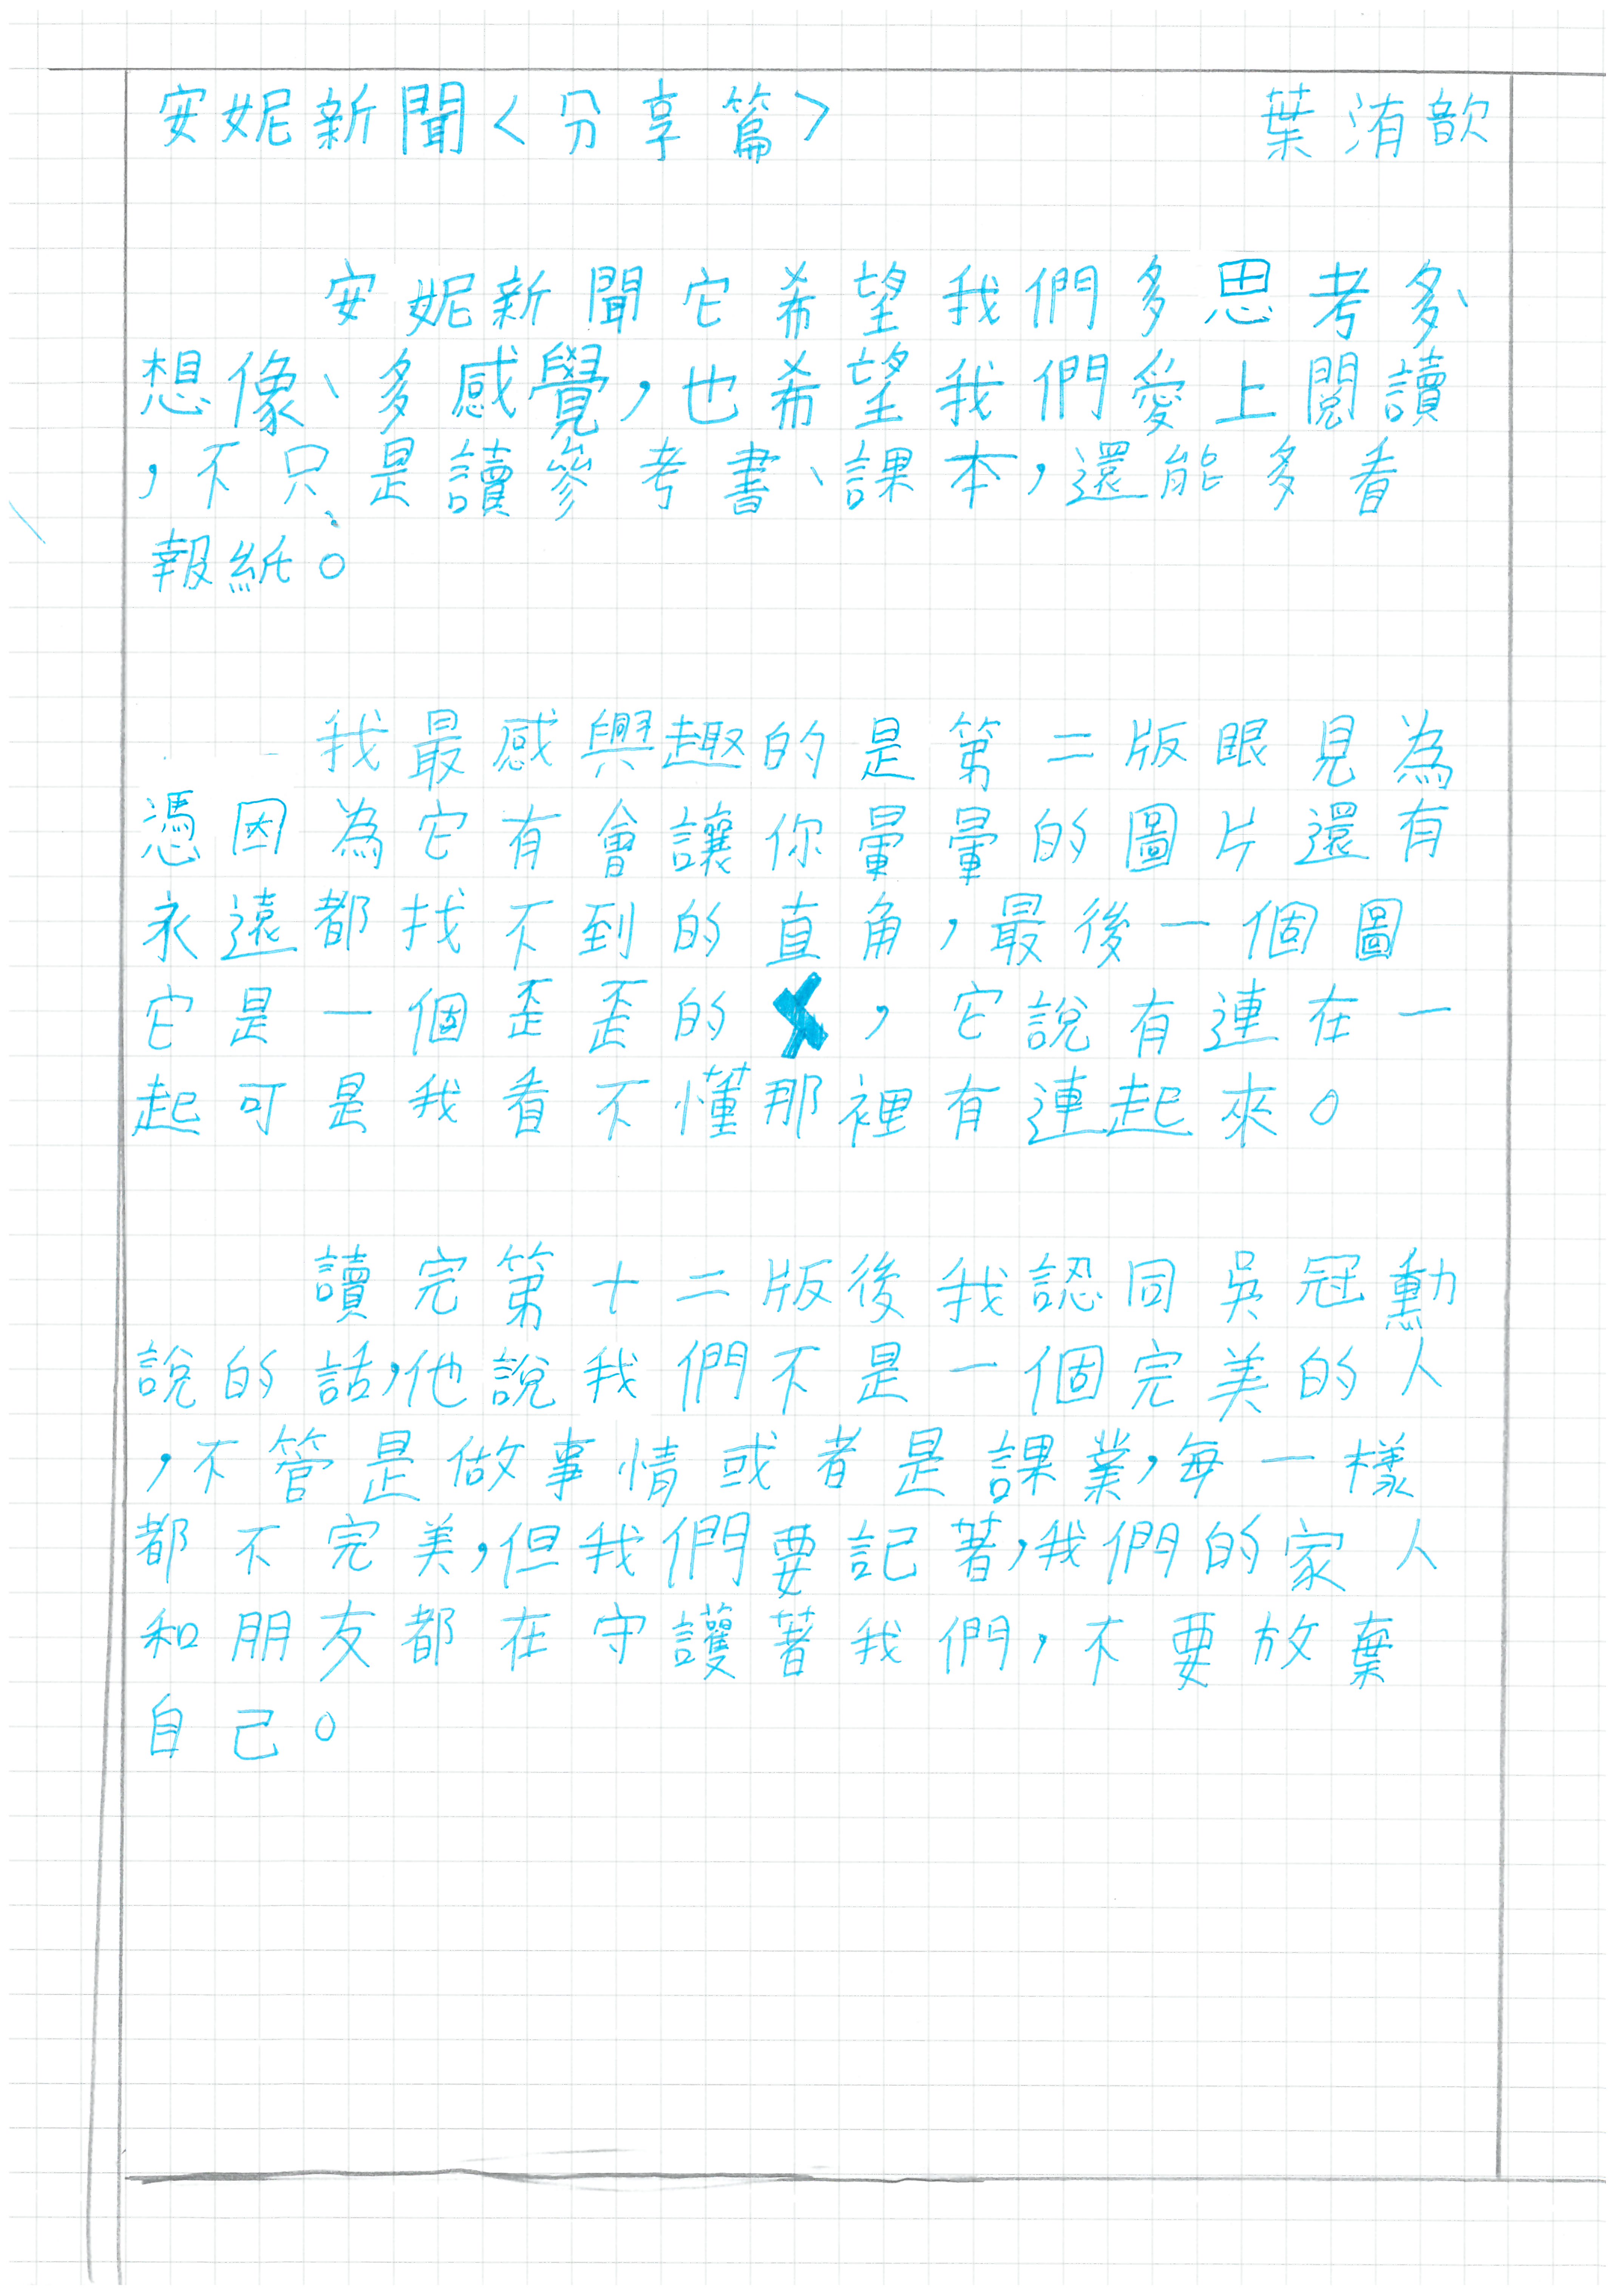 安妮新聞〈分享篇〉 葉洧歆
安妮新聞它希望我們多思考多、
想像、多感覺，也希望我們愛上閱讀
，不只是讀參考書、課本，還能多看
報紙。
我最感興趣的是第二版眼見為
憑因為它有會讓你暈暈的圖片還有
永遠都找不到的直角，最後一個圖
它是一個歪歪的X，它說有連在一
起可是我看不懂那裡有連起來。
讀完第十二版後我認同吳冠勳
說的話，他說我們不是一個完美的人
，不管是做事情或者是課業，每一樣
都不完美，但我們要記著，我們的家人
和朋友都在守護著我們，不要放棄
自己。